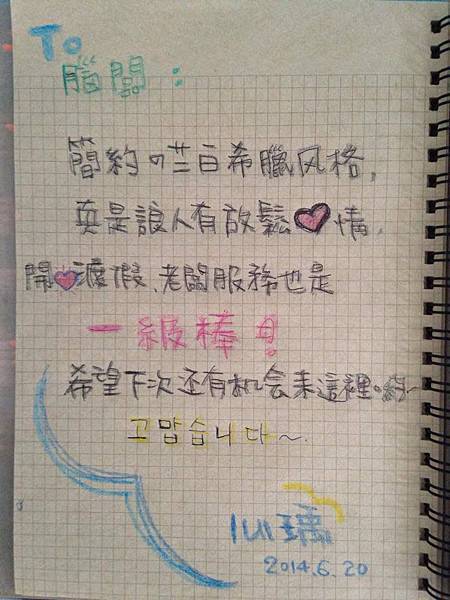 To
腦闆：
簡約の藍白希臘风格,
真是讓人有放鬆♥情,
開♥渡假、老闆服務也是
一級棒!
希望下次还有机会来這裡。
고맙습니다~.
2014.6.20